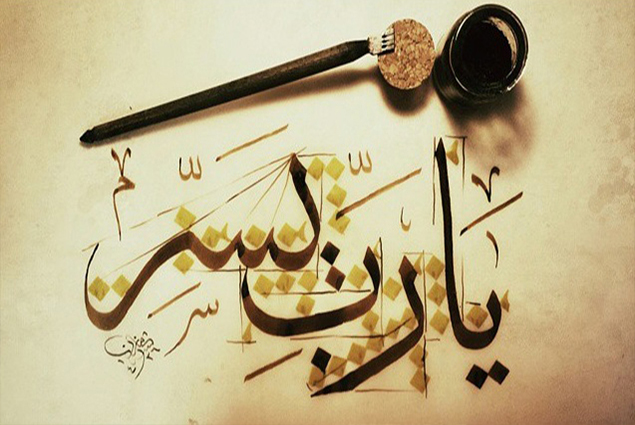 يا رب يسّر